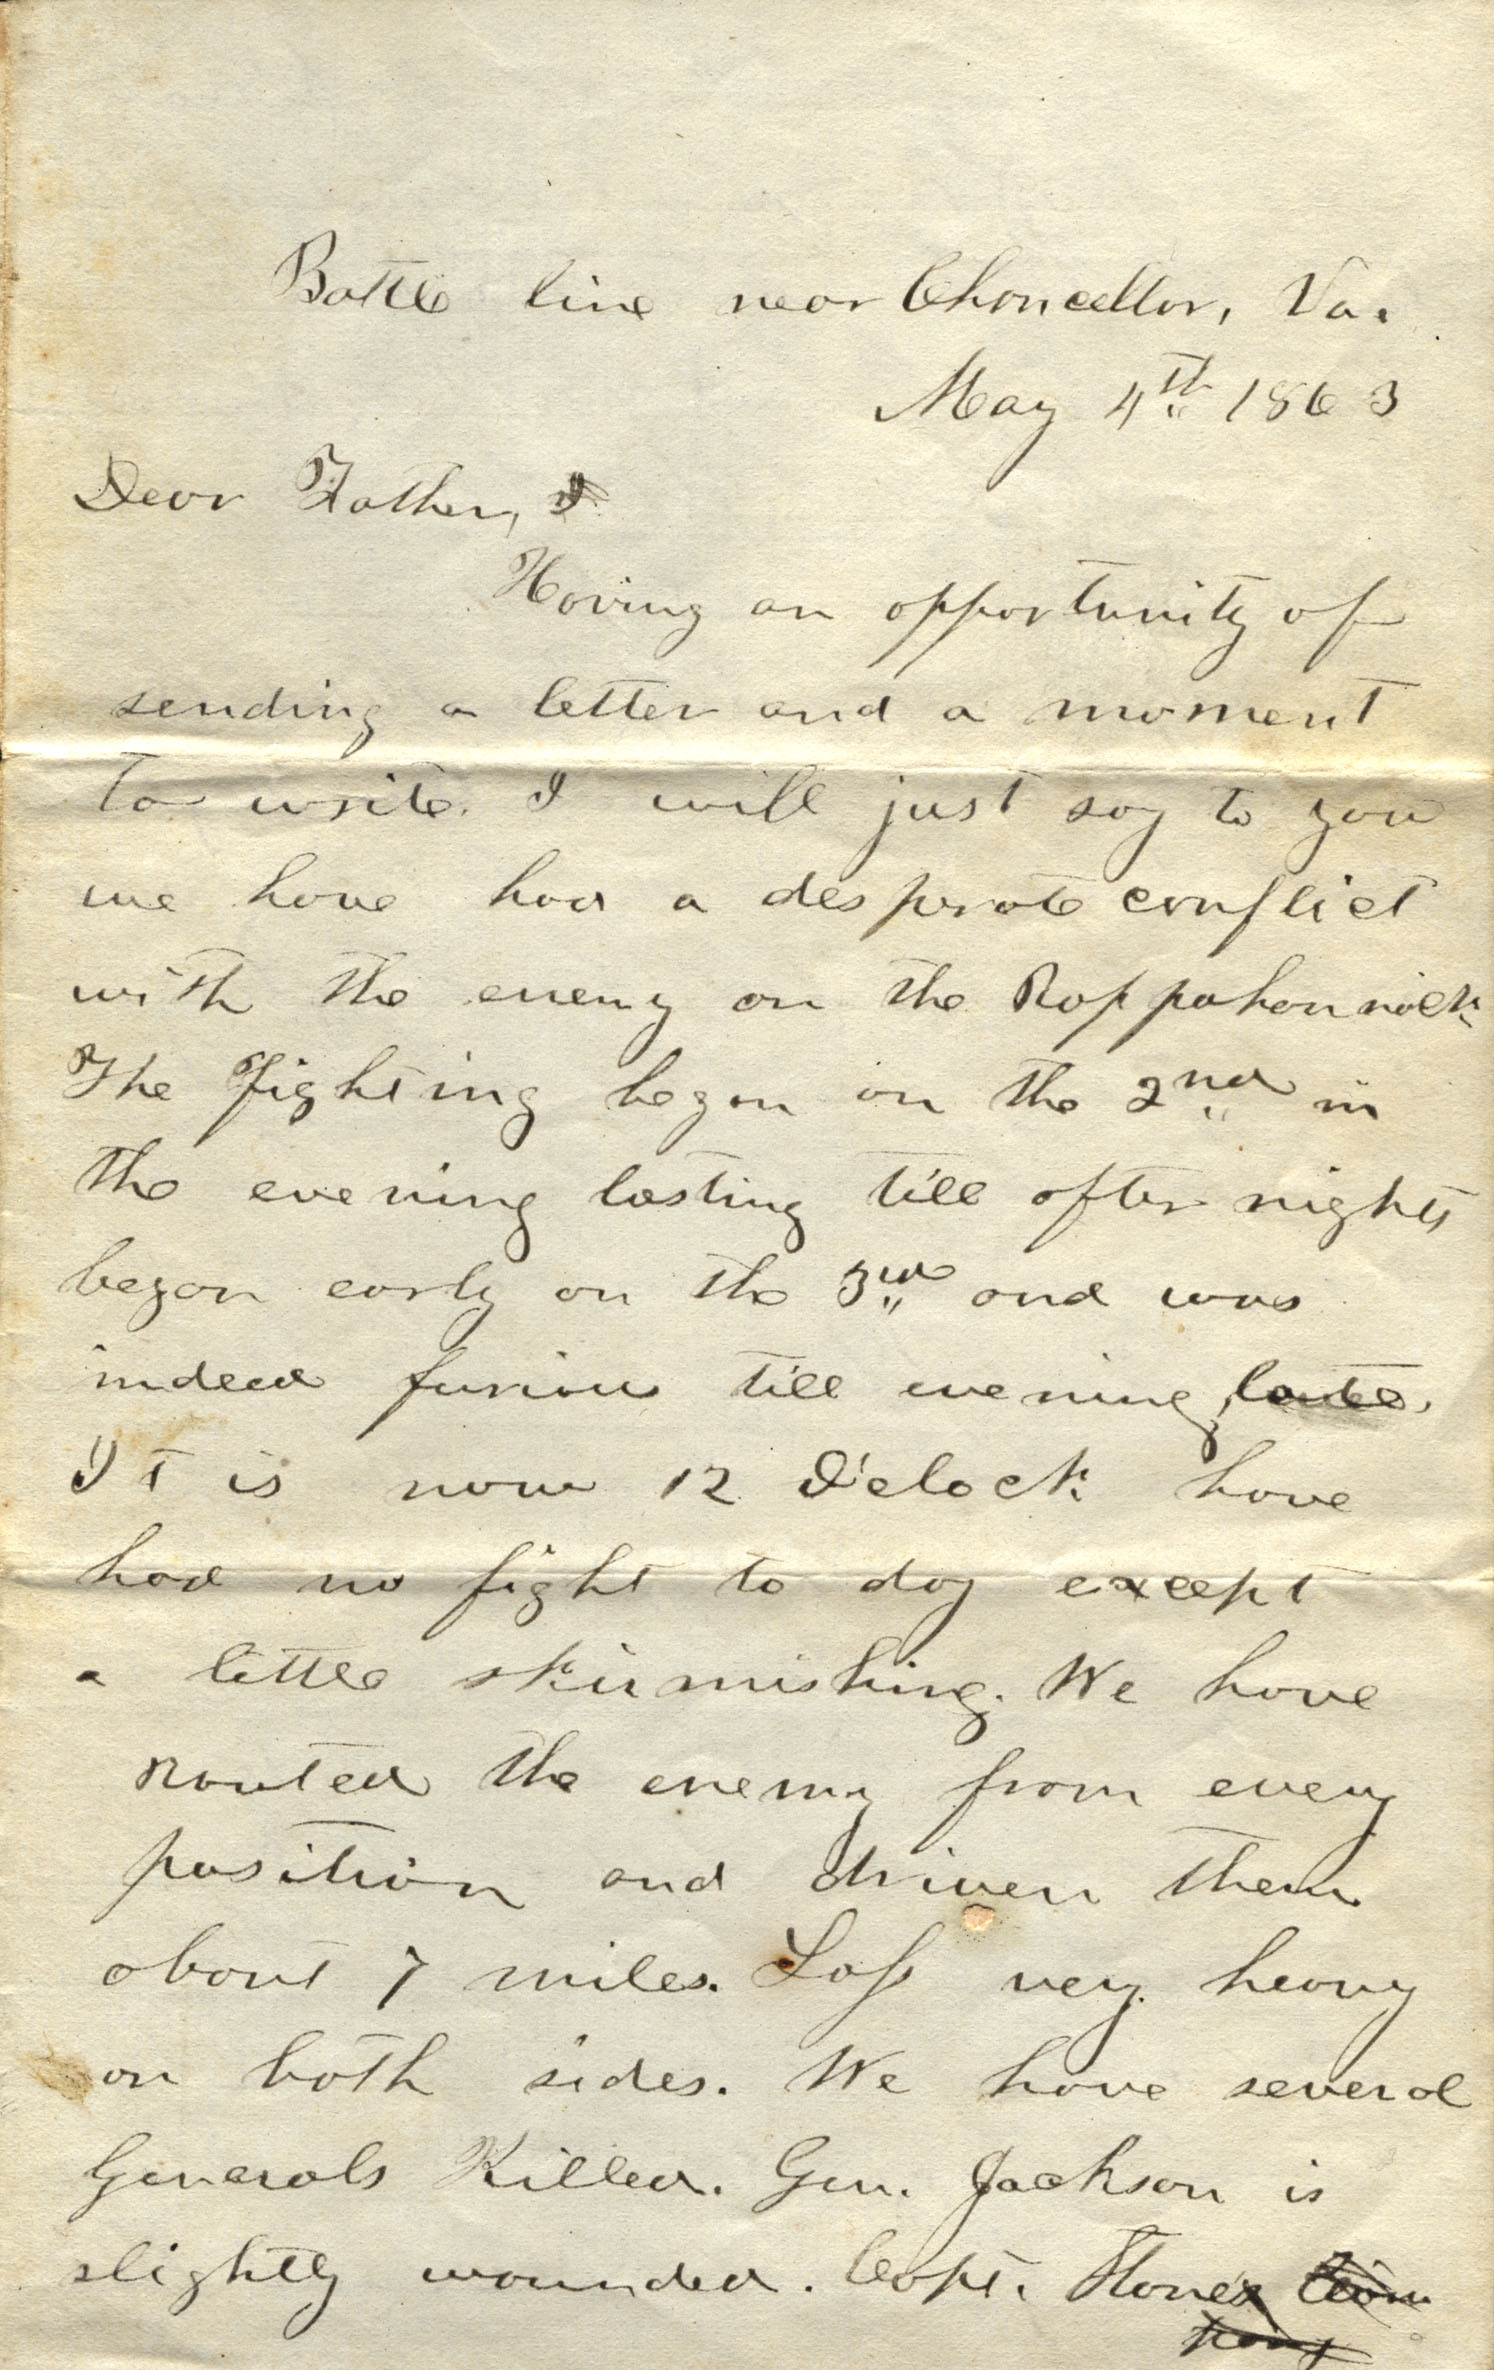 Battle line near Chancellor, Va.
May 4th 1863
Dear Father, I
Having an opportunity of
sending a letter and a moment
to write. I will just say to you
we have had a desperate conflict
with the enemy on the Rappahonnock
The Fighting began on the 2nd in
the evening lasting till after nights
began early on the 3rd and was
indeed furious till evening,
It is now 12 O'clock have
had no fight to day except
a little skirmishing. We have
Routed the enemy from every
position and driven them
about 7 miles. Loss very heavy
on both sides. We have several
Generals Killed. Gen. Jackson is
slightly wounded. Capt. Stone's Com
pany